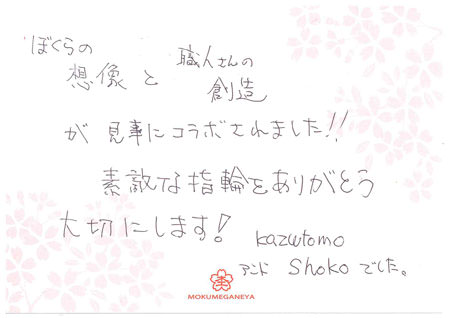 ぼくらの
想像と職人さんの
創造
が見事にコラボされました!!
素敵な指輪をありがとう
大切にします!
kazutomo
アンド Shokoでした。
MOKUMEGANEYA